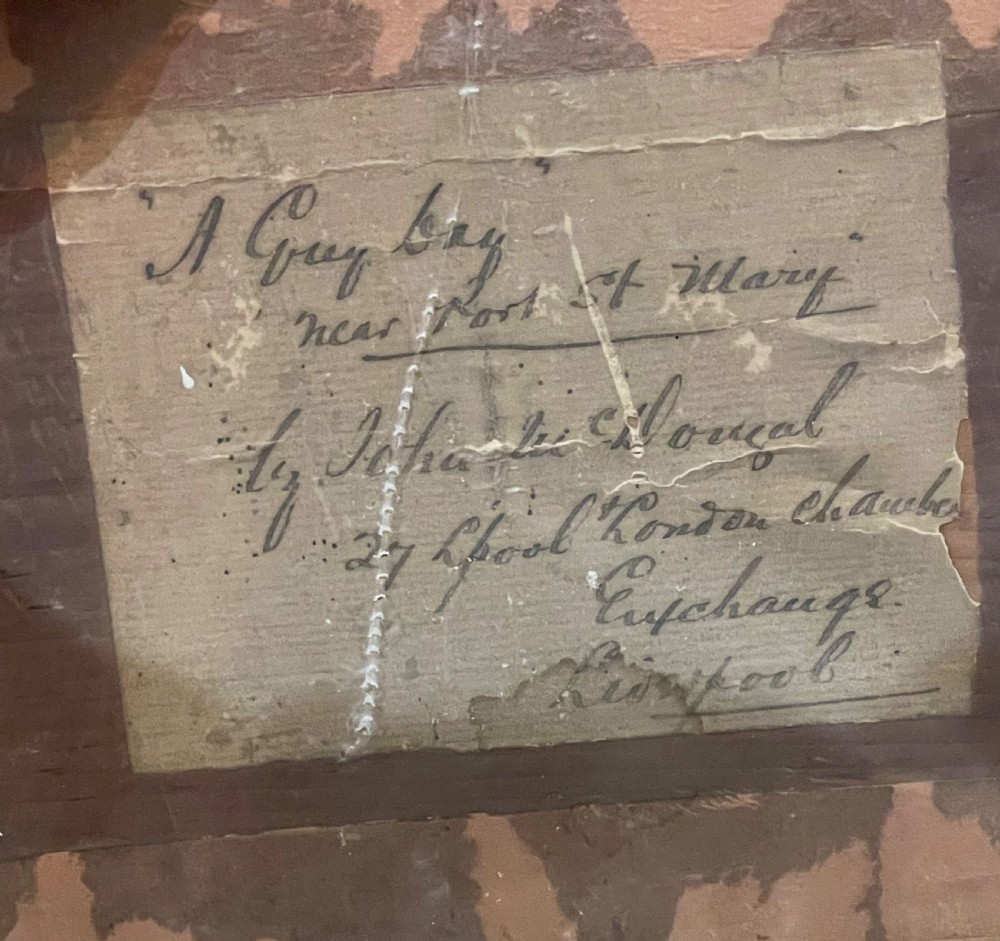 "A Grey Day"
near Port St Mary"
by John McDougal
27 Lpool & London Chambe
Exchange
Liverpool